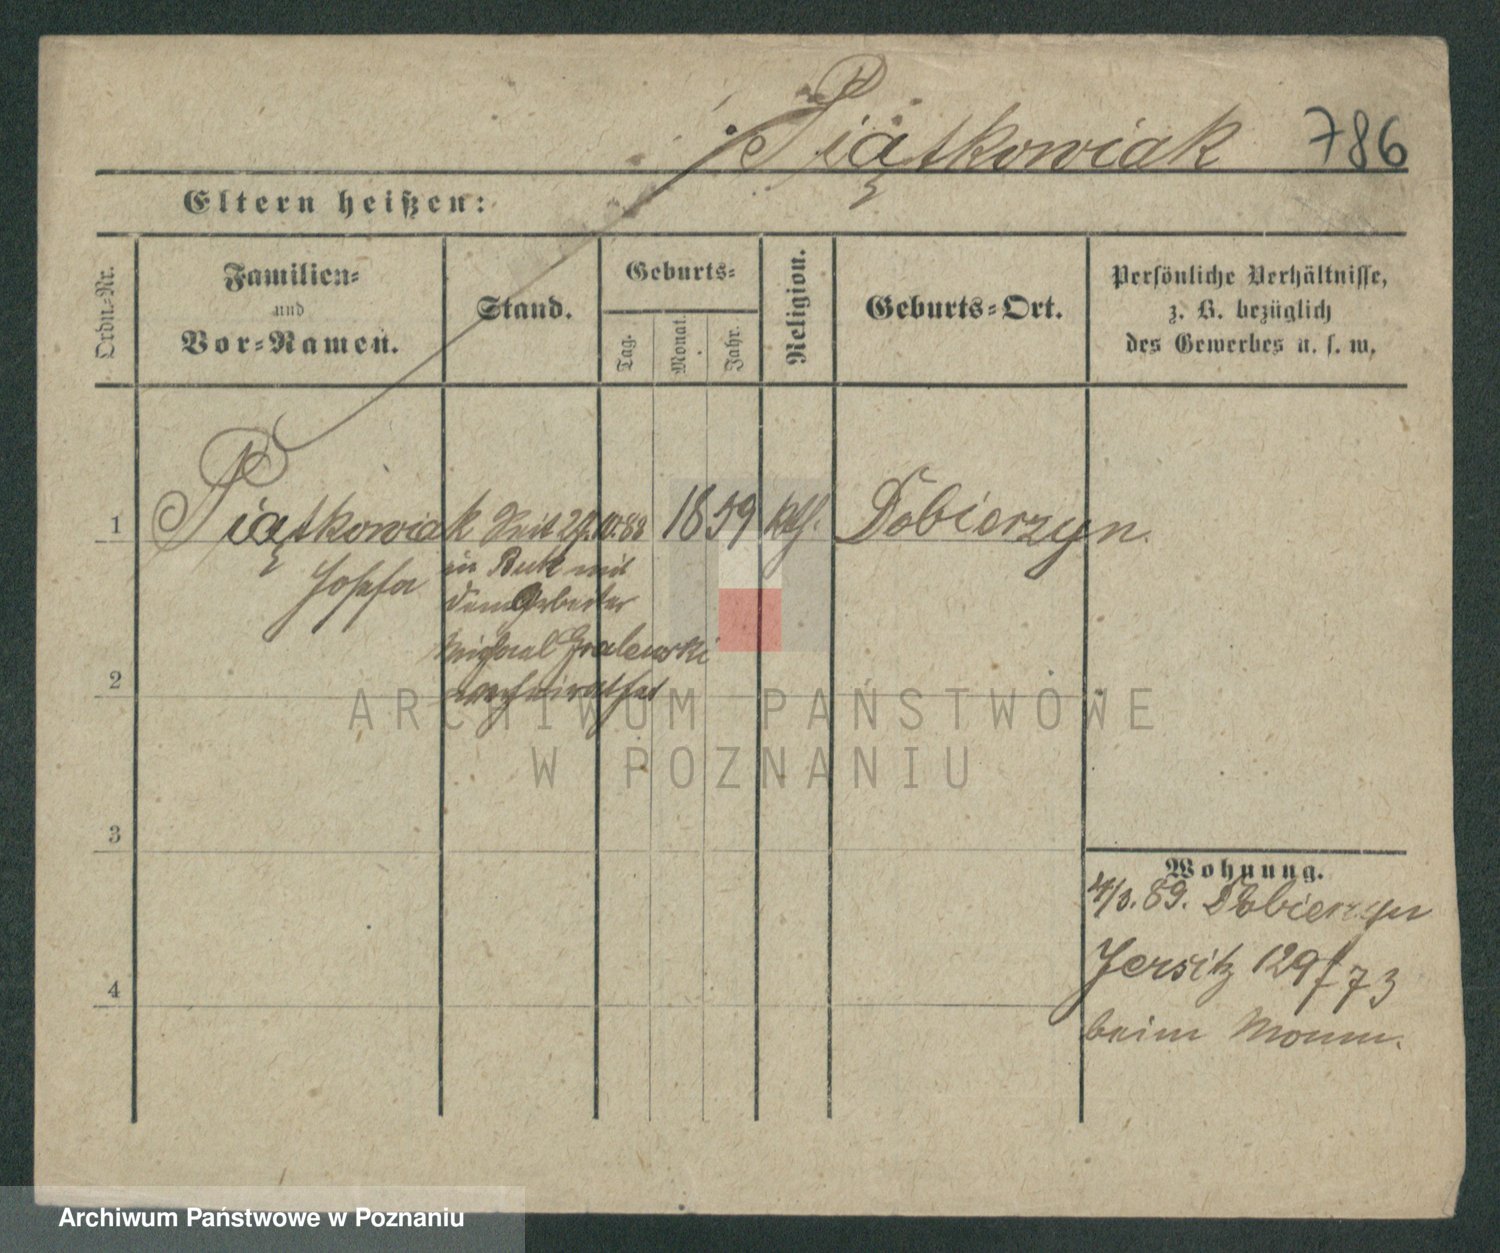 Piątkowiak 786
Eltern heißen:
Ordn.-Nr.
Familien-
und
Vor-Namen.
Stand.
Geburts-
Tag.
Monat.
Jahr.
Religion.
Geburts-Ort.
Persönliche Verhältnisse,
z. B. bezüglich
des Gewerbes u. s. w.
1 Piątkowiak
Josefa
Seit 27.10.88
in Buk mit
dem Arbeiter
Michael Gralewski
verheirathet
1859 kth. Dobierzyn.
2
3
4
Wohnung.
4/3. 89. Dobierzyn
Jersitz 129 f 73
beim Mann.
ARCHIWUM PAŃSTWOWE
W POZNANIU
Archiwum Państwowe w Poznaniu